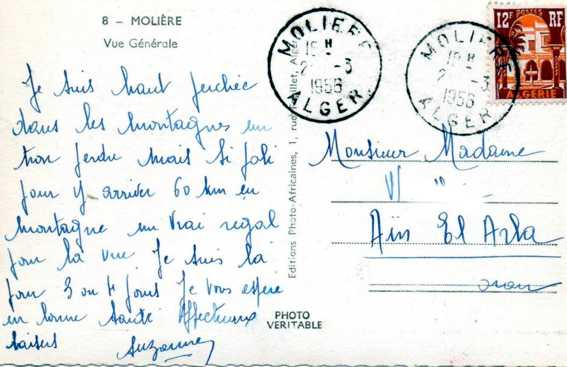 8 - MOLIÈRE
Vue Générale
Je suis haut perchée
dans les montagnes un
trou perdu mais si joli
pour y arriver 60 km en
montagne un vrai regal
pour la vue Je suis là
pour 3 ou 4 jours Je vous espère
en bonne santé Affectueux
baisers Suzanne
Editions Photo Africaines, 1, rue Alger
PHOTO
VERITABLE
MOLIERE
19 H
2 - 3
1956
ALGER
MOLIERE
19 H
2 - 3
1956
ALGER
12F POSTES RF
ALGERIE
Monsieur Madame
" "
Aïn El Arba
Oran